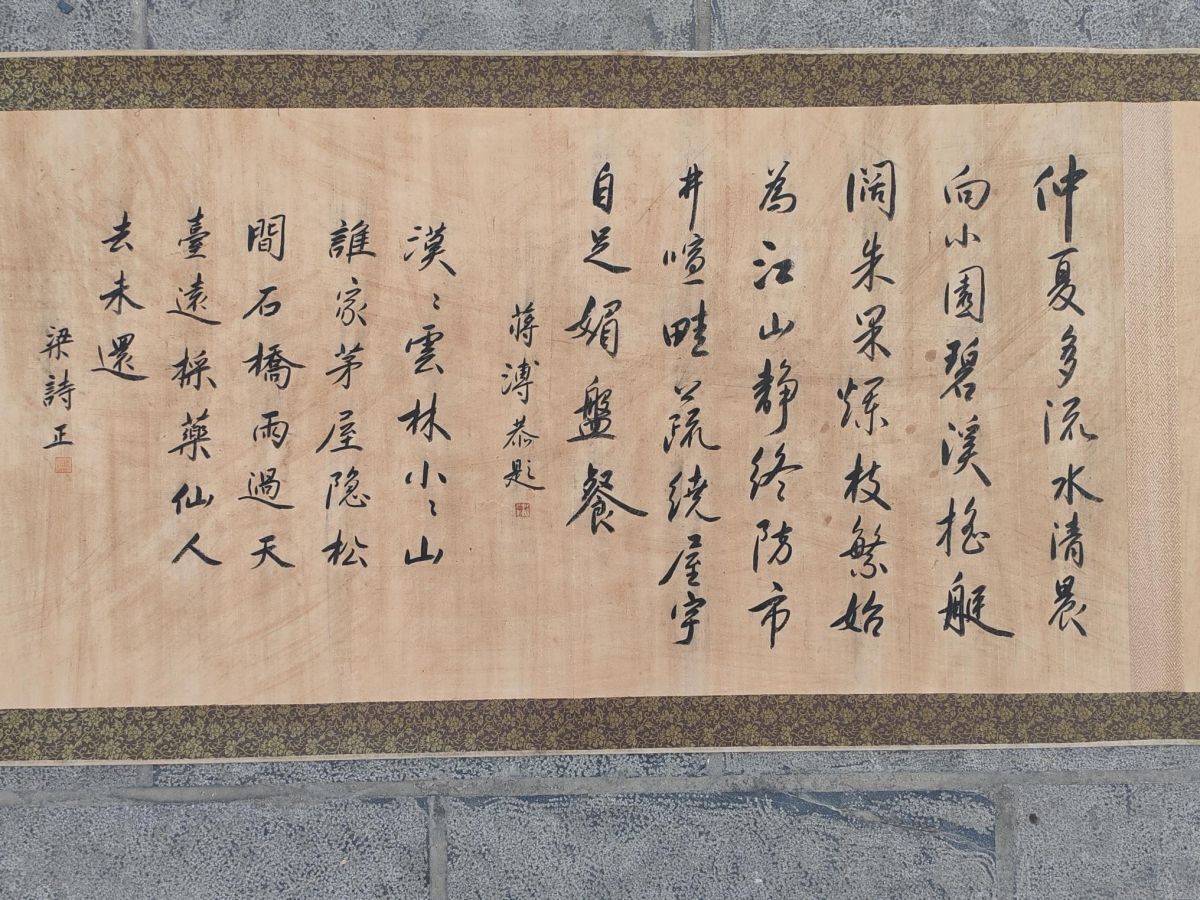 仲夏多流水清晨
向小園碧溪搖艇
闊朱果爛枝繁始
為江山靜終防市
井喧畦蔬繞屋宇
自足媚盤餐
蔣溥恭題
漠〻雲林小〻山
誰家茅屋隐松
間石橋雨過天
臺遠採藥仙人
去未還
梁詩正